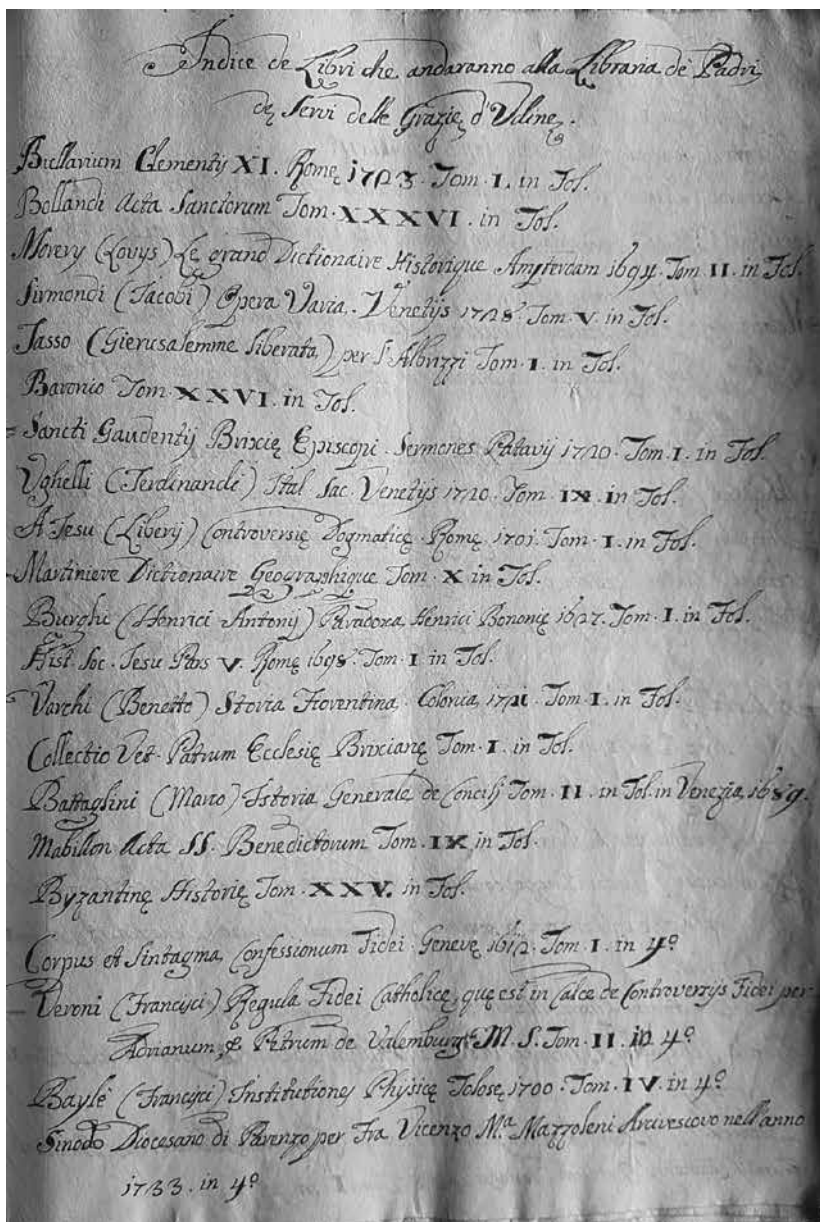 Indice de Libri che andaranno alla Libraria de Padri
de Servi delle Grazie d'Udine.
Bullarium Clementij XI. Romę 1723. Tom. I. in Fol.
Bollandi Acta Sanctorum Tom. XXXVI. in Fol.
Morery (Lovys) Le grand Dictionaire Historique Amsterdam 1694. Tom. II. in Fol.
Sirmondi (Jacobi) Opera Varia. Venetijs 1728. Tom. V. in Fol.
Tasso (Gierusalemme Liberata) per l'Albrizzi Tom. I. in Fol.
Baronio Tom. XXVI. in Fol.
Sancti Gaudentij Brixię Episcopi. Sermones Patavij 1720. Tom. I. in Fol.
Vghelli (Ferdinandi) Ital. Sac. Venetijs 1720. Tom. IX. in Fol.
A Jesu (Liberij) Controversię Dogmaticę. Romę. 1701. Tom. I. in Fol.
Martiniere Dictionaire Geographique Tom. X in Fol.
Burghi (Henrici Antonij) Paradoxa Henrici Bononię 1627. Tom. I. in Fol.
Hist. Soc. Jesu Pars V. Romę 1698. Tom. I in Fol.
Varchi (Benetto) Storia Fiorentina. Colonia 1721. Tom. I. in Fol.
Collectio Vet. Patrum Ecclesię Brixianę Tom. I. in Fol.
Battaglini (Marco) Istoria Generale de Concilj Tom. II. in Fol. in Venezia 1689.
Mabillon Acta SS. Benedictorum Tom. IX in Fol.
Byzantinę Historię Tom. XXV. in Fol.
Corpus et Sintagma Confessionum Fidei. Genevę 1612. Tom. I. in 4º
Veroni (Francisci) Regula Fidei Catholicę, quę est in calce de Controversijs Fidei per
Adrianum, & Petrum de Valemburg M. S. Tom. II. in 4º
Baylè (Francisci) Institutiones Physicę Tolosę 1700. Tom. IV. in 4º
Sinodo Diocesano di Parenzo per Fra Vicenzo M.ª Mazzoleni Arcivescovo nell'anno
1733. in 4º